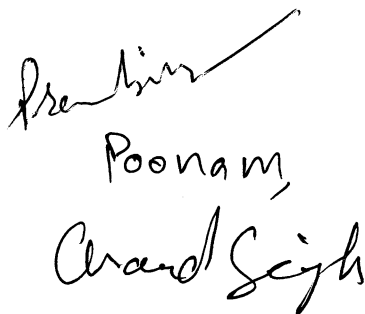 Poonam,
Chand Singh